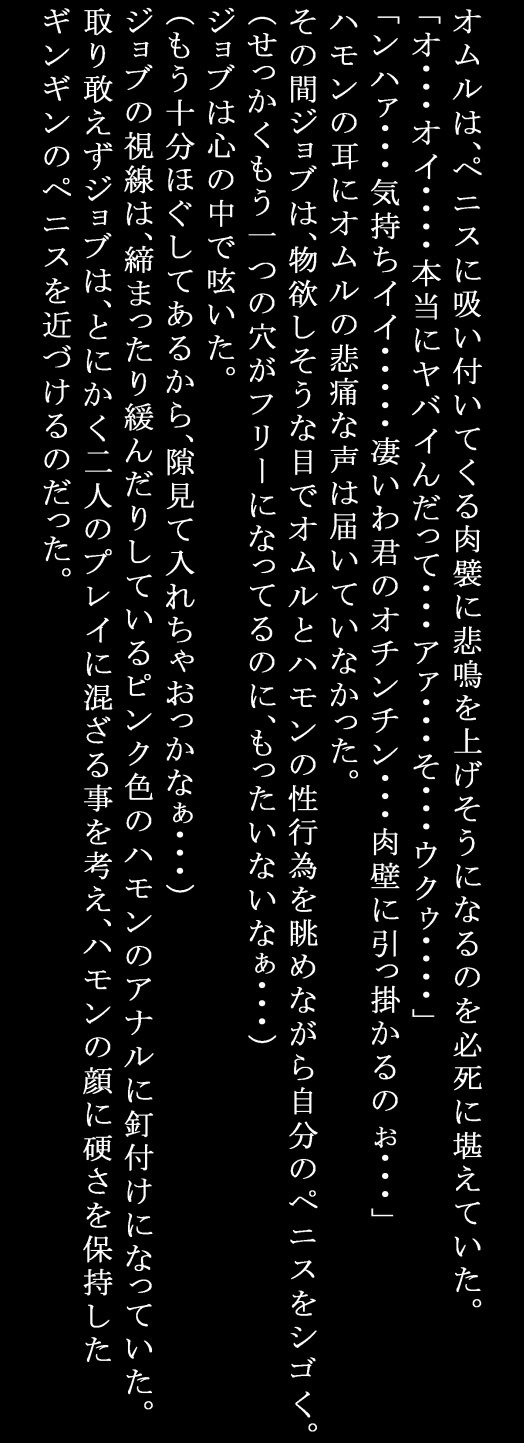 オムルは、ペニスに吸い付いてくる肉襞に悲鳴を上げそうになるのを必死に堪えていた。
「オ・・・オイ・・・・本当にヤバイんだって・・・アァ・・・そ・・・ウクゥ・・・・」
「ンハァ・・・気持ちイイ・・・・・凄いわ君のオチンチン・・・肉壁に引っ掛かるのぉ・・・」
ハモンの耳にオムルの悲痛な声は届いていなかった。
その間ジョブは、物欲しそうな目でオムルとハモンの性行為を眺めながら自分のペニスをシゴく。
（せっかくもう一つの穴がフリーになってるのに、もったいないなぁ・・・）
ジョブは心の中で呟いた。
（もう十分ほぐしてあるから、隙見て入れちゃおっかなぁ・・・）
ジョブの視線は、締まったり緩んだりしているピンク色のハモンのアナルに釘付けになっていた。
取り敢えずジョブは、とにかく二人のプレイに混ざる事を考え、ハモンの顔に硬さを保持した
ギンギンのペニスを近づけるのだった。